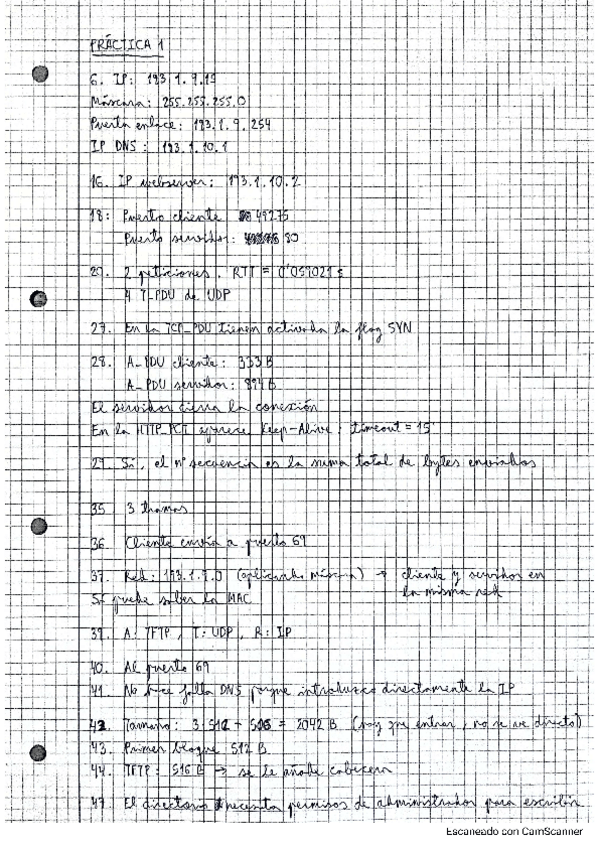 PRÁCTICA 1
6. IP: 193.1.9.19
Máscara: 255.255.255.0
Puerta enlace: 193.1.9.254
IP DNS: 193.1.10.1
16. IP webserver: 193.1.10.2
18: Puerto cliente 49275
Puerto servidor: 80
20. 2 peticiones. RTT = 0'057021 s
4 T_PDU de UDP
27. En la TCP_PDU tienen activada la flag SYN
28. A_PDU cliente: 333 B
A_PDU servidor: 894 B
El servidor cierra la conexión
En la HTTP_PCI aparece Keep-Alive: timeout = 15
29. Sí, el nº secuencia es la suma total de bytes enviados
35. 3 tramas
36. Cliente envía a puerto 69
37. Red: 193.1.9.0 (aplicando máscara) → cliente y servidor en
la misma red
Sí puede saber la MAC
39. A: TFTP, T: UDP, R: IP
40. Al puerto 69
41. No hace falta DNS porque introduzco directamente la IP
42. Tamaño: 3·512 + 506 = 2042 B (hay que entrar, no se ve directo)
43. Primer bloque 512 B.
44. TFTP: 516 B → se le añade cabecera
47. El directorio necesita permisos de administrador para escribir
Escaneado con CamScanner